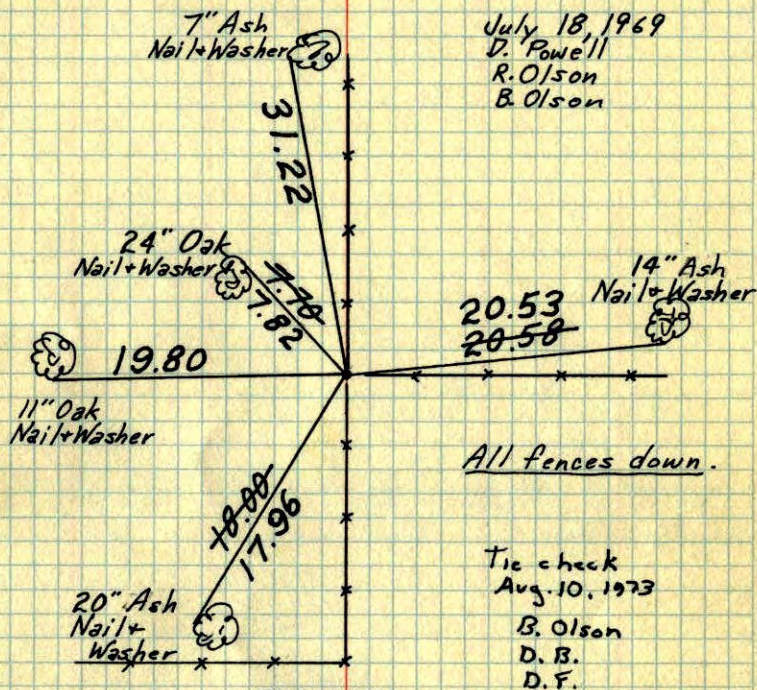 7" Ash
Nail+Washer
July 18, 1969
D. Powell
R. Olson
B. Olson
31.22
24" Oak
Nail+Washer
7.70
7.82
14" Ash
Nail+Washer
20.53
20.58
19.80
11" Oak
Nail+Washer
All fences down.
18.00
17.96
20" Ash
Nail+
Washer
Tie check
Aug. 10, 1973
B. Olson
D. B.
D. F.